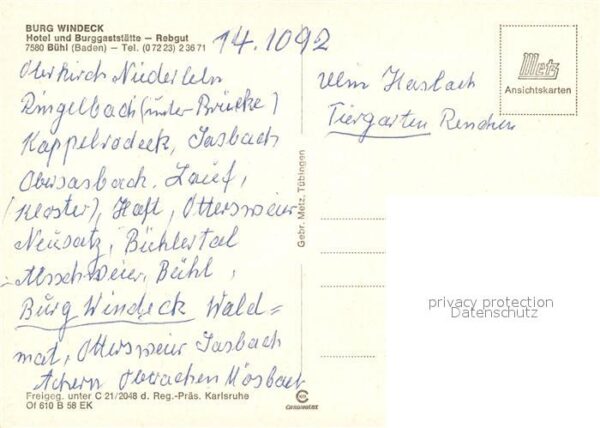 BURG WINDECK
Hotel und Burggaststätte – Rebgut
7580 Bühl (Baden) – Tel. (07223) 23671
14.1092
Oberkirch Niederlehn
Ringelbach (unter Brücke)
Kappelrodeck, Sasbach
Obersasbach, Lauf,
(Kloster), Haft, Ottersweier
Neusatz, Bühlertal
Altschweier, Bühl,
Burg Windeck Wald=
mat, Ottersweier Sasbach
Achern Oberachern Mösbach
Freigeg. unter C 21/2048 d. Reg.-Präs. Karlsruhe
Of 610 B 58 EK
Gebr. Metz, Tübingen
CHROMOLUX
Metz
Ansichtskarten
Ulm Haslach
Tiergarten Renchen
privacy protection
Datenschutz